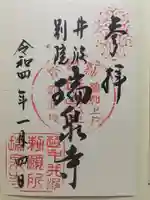 奉拝
井波
別院
瑞泉寺
令和四年一月四日
勅願所